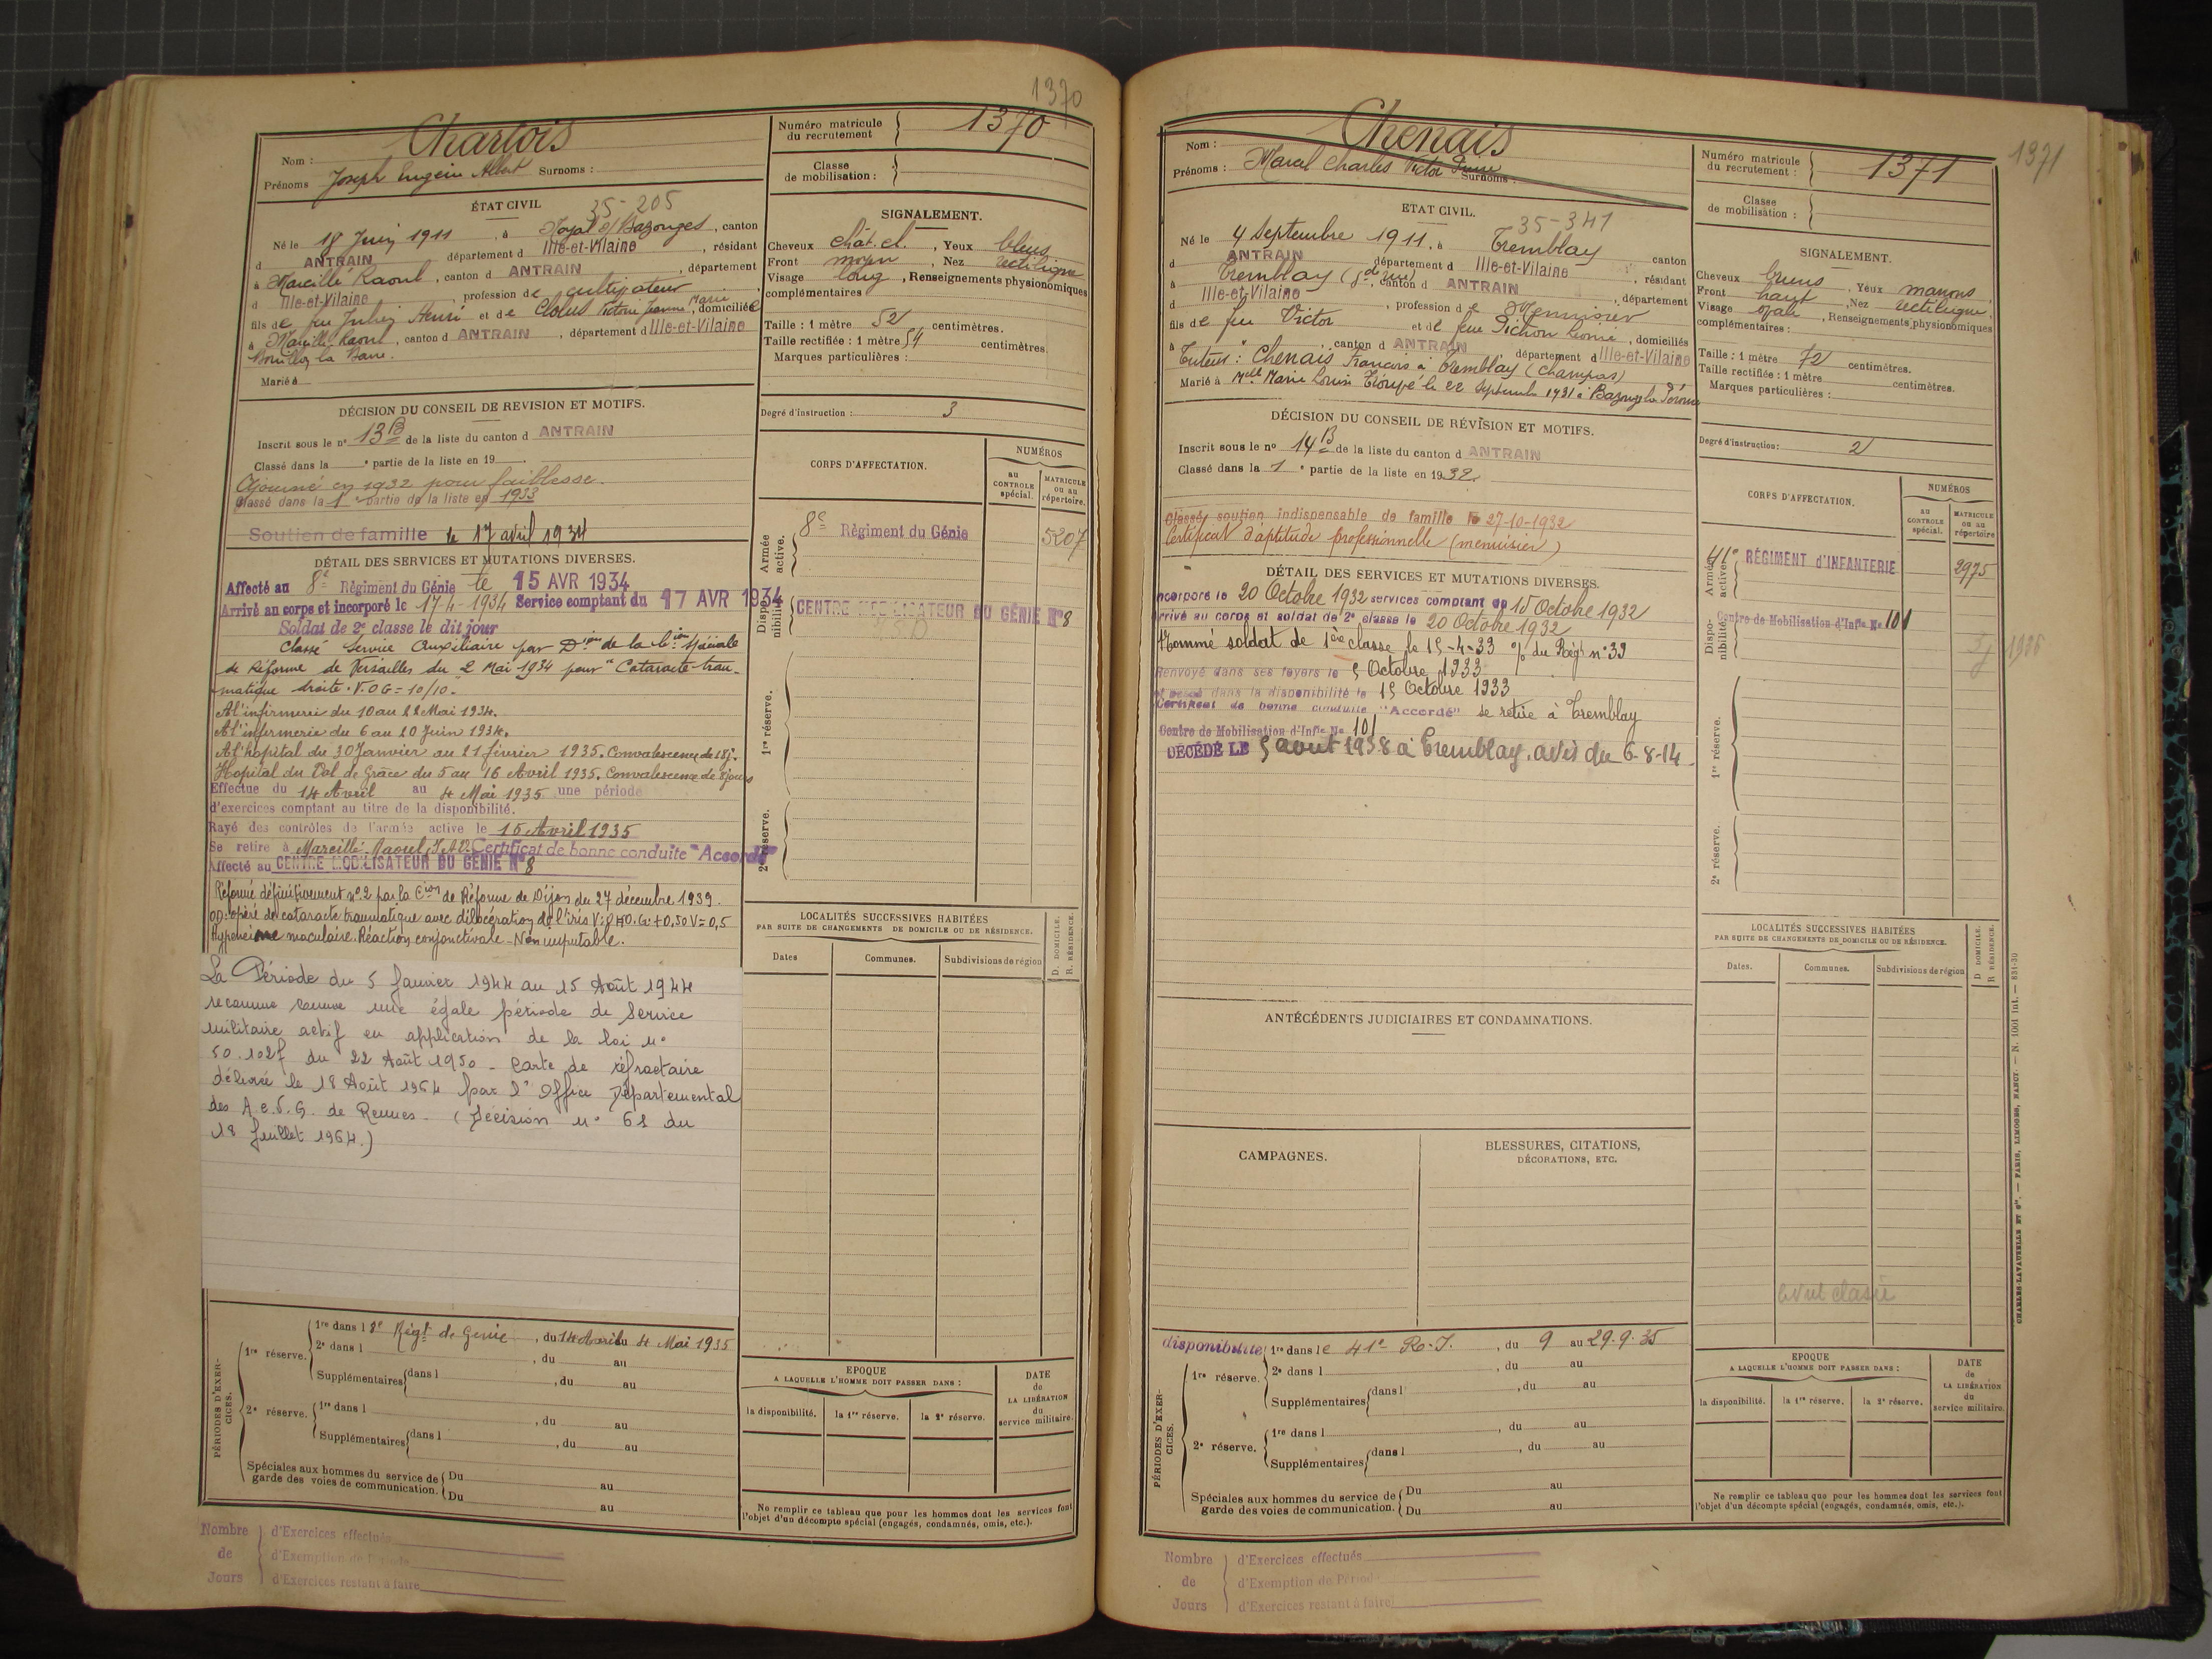 1370
Nom : Chartois
Prénoms Joseph Eugène Albert Surnoms :
Numéro matricule du recrutement 1370
Classe de mobilisation :
ÉTAT CIVIL 35-205
Né le 18 Juin 1911, à Noyal s/ Bazouges, canton
d ANTRAIN département d Ille-et-Vilaine, résidant
à Marcillé Raoul, canton d ANTRAIN, département
d Ille-et-Vilaine, profession de cultivateur
fils de feu Julien Henri et de Victoire Jeanne Marie, domiciliée
à Marcillé Raoul, canton d ANTRAIN, département d Ille-et-Vilaine
Marié à
SIGNALEMENT.
Cheveux chât. cl., Yeux bleus
Front moyen, Nez rectiligne
Visage long, Renseignements physionomiques
complémentaires
Taille : 1 mètre 52 centimètres.
Taille rectifiée : 1 mètre 54 centimètres.
Marques particulières :
Degré d'instruction : 3
DÉCISION DU CONSEIL DE REVISION ET MOTIFS.
Inscrit sous le n° 13 B de la liste du canton d ANTRAIN
Classé dans la e partie de la liste en 19
Ajourné en 1932 pour faiblesse.
Classé dans la 1e partie de la liste en 1933
Soutien de famille le 17 avril 1934
DÉTAIL DES SERVICES ET MUTATIONS DIVERSES.
Affecté au 8e Régiment du Génie le 15 AVR 1934
Arrivé au corps et incorporé le 17-4-1934 Service comptant du 17 AVR 1934
Soldat de 2e classe le dit jour
Classé Service Auxiliaire par Dion de la Cion Spéciale
de Réforme de Versailles du 2 Mai 1934 pour "Cataracte trau-
matique droite. V.OG = 10/10.
A l'infirmerie du 10 au 22 Mai 1934.
A l'infirmerie du 6 au 20 Juin 1934.
A l'hôpital du 30 Janvier au 21 février 1935. Convalescence de 18 j.
Hopital du Val de Grâce du 5 au 16 Avril 1935. Convalescence de 8 jours
Effectue du 14 Avril au 4 Mai 1935 une période
d'exercices comptant au titre de la disponibilité.
Rayé des contrôles de l'armée active le 15 Avril 1935
Se retire à Marcillé-Raoul, I.&V. Certificat de bonne conduite "Accordé"
Affecté au CENTRE MOBILISATEUR DU GÉNIE N°8
Réformé définitivement n°2 par la Cion de Réforme de Dijon du 27 décembre 1939.
OD: opéré de cataracte traumatique avec dilacération de l'iris O.G: +0,50 V=0,5
maculaire. Réaction conjonctivale - Non imputable.
La Période du 5 Janvier 1944 au 15 Août 1944
reconnue comme une égale période de Service
militaire actif en application de la loi n°
50.1027 du 22 Août 1950 - Carte de réfractaire
délivrée le 18 Août 1964 par l'Office Départemental
des A.C.V.G. de Rennes - (Décision n° 61 du
18 Juillet 1964.)
CORPS D'AFFECTATION.
NUMÉROS
au CONTROLE spécial.
MATRICULE ou au répertoire.
Armée active.
8e Régiment du Génie 5207
Disponibilité
CENTRE MOBILISATEUR DU GÉNIE N°8
1re réserve.
2e réserve.
LOCALITÉS SUCCESSIVES HABITÉES
PAR SUITE DE CHANGEMENTS DE DOMICILE OU DE RÉSIDENCE.
D. DOMICILE.
R. RÉSIDENCE.
Dates Communes. Subdivisions de région
PÉRIODES D'EXERCICES.
1re réserve.
1re dans l 8e Régt de Génie, du 14 Avril au 4 Mai 1935
2e dans l , du au
Supplémentaires dans l , du au
2e réserve.
1re dans l , du au
Supplémentaires dans l , du au
Spéciales aux hommes du service de garde des voies de communication. Du au
Du au
EPOQUE
A LAQUELLE L'HOMME DOIT PASSER DANS :
la disponibilité. la 1re réserve. la 2e réserve.
DATE de LA LIBÉRATION du service militaire.
Ne remplir ce tableau que pour les hommes dont les services font
l'objet d'un décompte spécial (engagés, condamnés, omis, etc.).
Nombre de Jours
d'Exercices effectués
d'Exemption de Période
d'Exercices restant à faire
1371
Nom : Chenais
Prénoms : Marcel Charles Victor Surnoms :
Numéro matricule du recrutement : 1371
Classe de mobilisation :
ETAT CIVIL. 35-341
Né le 4 Septembre 1911, à Tremblay canton
d ANTRAIN département d Ille-et-Vilaine, résidant
Tremblay (gde rue), canton d ANTRAIN, département
d Ille-et-Vilaine, profession de Menuisier
fils de feu Victor et de feue Pichon Léonie, domiciliés
à , canton d ANTRAIN département d Ille-et-Vilaine
Tuteur : Chenais François à Tremblay (Champas)
Marié à Melle Marie Louise le 22 Septembre 1931 à Bazouges la Pérouse
SIGNALEMENT.
Cheveux bruns, Yeux marrons
Front haut, Nez rectiligne
Visage ovale, Renseignements physionomiques
complémentaires :
Taille : 1 mètre 72 centimètres.
Taille rectifiée : 1 mètre centimètres.
Marques particulières :
Degré d'instruction : 2
DÉCISION DU CONSEIL DE RÉVISION ET MOTIFS.
Inscrit sous le n° 14 B de la liste du canton d ANTRAIN
Classé dans la 1e partie de la liste en 1932
Classé soutien indispensable de famille le 27-10-1932
Certificat d'aptitude professionnelle (menuisier)
DÉTAIL DES SERVICES ET MUTATIONS DIVERSES.
Incorporé le 20 Octobre 1932 services comptant du 15 Octobre 1932
Arrivé au corps et soldat de 2e classe le 20 Octobre 1932
Nommé soldat de 1ère classe le 15-4-33 % du Régt n°39
Renvoyé dans ses foyers le 5 Octobre 1933
et passé dans la disponibilité le 15 Octobre 1933
Certificat de bonne conduite "Accordé" se retire à Tremblay
Centre de Mobilisation d'Infie No 101
DÉCÉDÉ LE 5 août 1938 à Tremblay. avis du 6-8-14.
CORPS D'AFFECTATION.
NUMÉROS
au CONTROLE spécial.
MATRICULE ou au répertoire
Armée active.
41e RÉGIMENT d'INFANTERIE 2975
Disponibilité
Centre de Mobilisation d'Infie No 101
1re réserve.
2e réserve.
ANTÉCÉDENTS JUDICIAIRES ET CONDAMNATIONS.
CAMPAGNES.
BLESSURES, CITATIONS, DÉCORATIONS, ETC.
LOCALITÉS SUCCESSIVES HABITÉES
PAR SUITE DE CHANGEMENTS DE DOMICILE OU DE RÉSIDENCE.
D DOMICILE.
R RÉSIDENCE.
Dates. Communes. Subdivisions de région
PÉRIODES D'EXERCICES.
disponibilité 1re dans le 41e R.I., du 9 au 29.9.35
1re réserve. 2e dans l , du au
Supplémentaires dans l , du au
2e réserve.
1re dans l , du au
Supplémentaires dans l , du au
Spéciales aux hommes du service de garde des voies de communication. Du au
Du au
EPOQUE
A LAQUELLE L'HOMME DOIT PASSER DANS :
la disponibilité. la 1re réserve. la 2e réserve.
DATE de LA LIBÉRATION du service militaire.
Ne remplir ce tableau que pour les hommes dont les services font
l'objet d'un décompte spécial (engagés, condamnés, omis, etc.).
Nombre de Jours
d'Exercices effectués
d'Exemption de Période
d'Exercices restant à faire
CHARLES-LAVAUZELLE ET Cie. — PARIS, LIMOGES, NANCY. — N. 1001 int. — 831-30